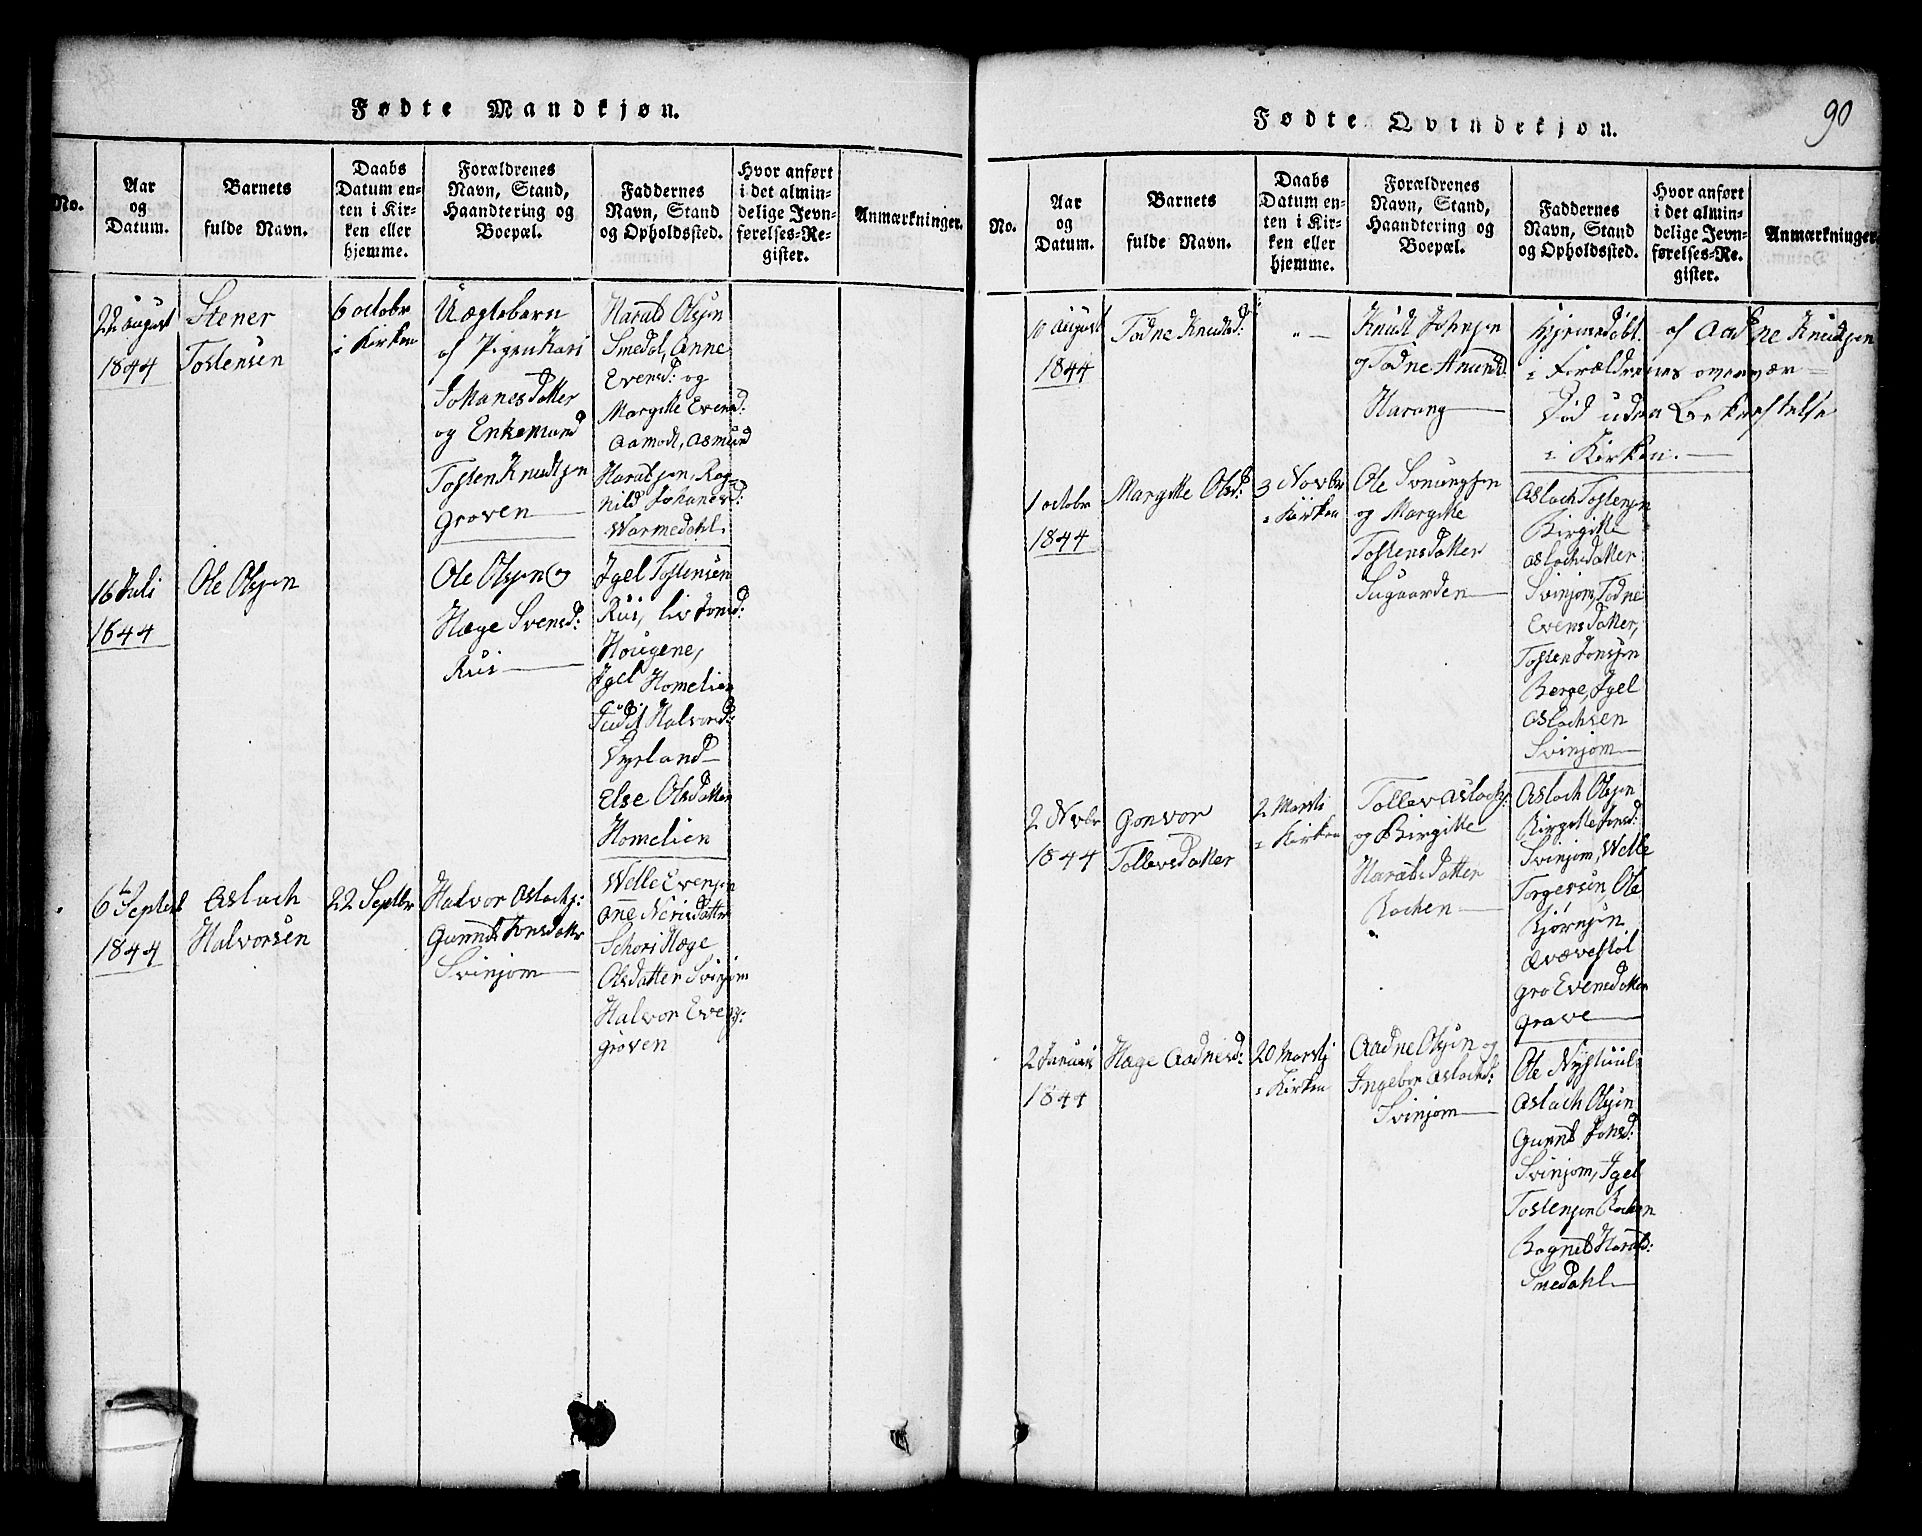 Fødte Mandkjøn.
No.
Aar
og
Datum.
Barnets
fulde Navn.
Daabs
Datum en-
ten i Kir-
ken eller
hjemme.
Forældrenes
Navn, Stand,
Haandtering og
Boepæl.
Faddernes
Navn, Stand
og Opholdssted.
Hvor anført
i det almin-
delige Jevn-
førelses-Re-
gister.
Anmærkninger.
22 august
1844
Stener
Tostensen
6 octobr
i Kirken
Uægtebarn
af Pigen Kari
Johanes Datter
og Enkemand
Tosten Knudtsen
Groven
Harald Olsen
Smedal, Anne
Evensd: og
Margitte Evensd:
Aamodt, Asmund
Haralsen, Rag-
nild Johanesd:
Warmedahl.
16 Juli
1844
Ole Olsen
Ole Olsen og
Hæge Svensd:
Rui
Igel Tostensen
Rui, Liv Jonsd:
Hougene,
Igel Homelien
Judit Halvord:
Vysland
Else Olsdatter
Homelien
6 Septebr
1844
Aslach
Halvorsen
22 Septbr
Halvor Aslachs:
Gunnil Jonsdatter
Svinjom
Welle Evensen
Ane Nerisdatter
Schori Hæge
Olsdatter Svinjom
Halvor Evens:
Groven
Fødte Qvindekjøn.
90
No.
Aar
og
Datum.
Barnets
fulde Navn.
Daabs
Datum en-
ten i Kir-
ken eller
hjemme.
Forældrenes
Navn, Stand,
Haandtering og
Boepæl.
Faddernes
Navn, Stand
og Opholdssted.
Hvor anført
i det almin-
delige Jevn-
førelses-Re-
gister.
Anmærkninger
10 August
1844
Todne Knudsd:
Knudt Johnsen
og Todne Anunds
Harang
Hjemedøbt af Aadne Knudsen
i Forældrenes overvær
Død uden Bekræftelse
i Kirken.
1 octobr
1844
Margitte Olsd:
3 Novbr
i Kirken
Ole Svenungsen
og Margitte
Tostensdatter
Sugaarden
Aslach Tostensen
Birgitte
Aslachsdatter
Svinjom, Todne
Evensdatter,
Tosten Jonsen
Berge, Igel
Aslachsen
Svinjom
2 Novbr
1844
Gonvor
Tollevsdatter
2 Marsti
i Kirken
Tollev Aslachs:
og Birgitte
Haralsdatter
Rochen
Aslach Olsen
Birgitte Jonsd:
Svinjom, Welle
Torgersen Ole
Bjørnsen
Qvævestøl
Gro Evensdatter
Grave
2 Januari
1844
Hæge Aadnesd:
20 Marstj
i Kirken
Aadne Olsen og
Ingebor Aslachsd:
Svinjom
Ole Nystuul
Aslach Olsen
Gunnil Jonsd:
Svinjom, Igel
Tostensen Rochen
Ragnil Harals:
Smedahl